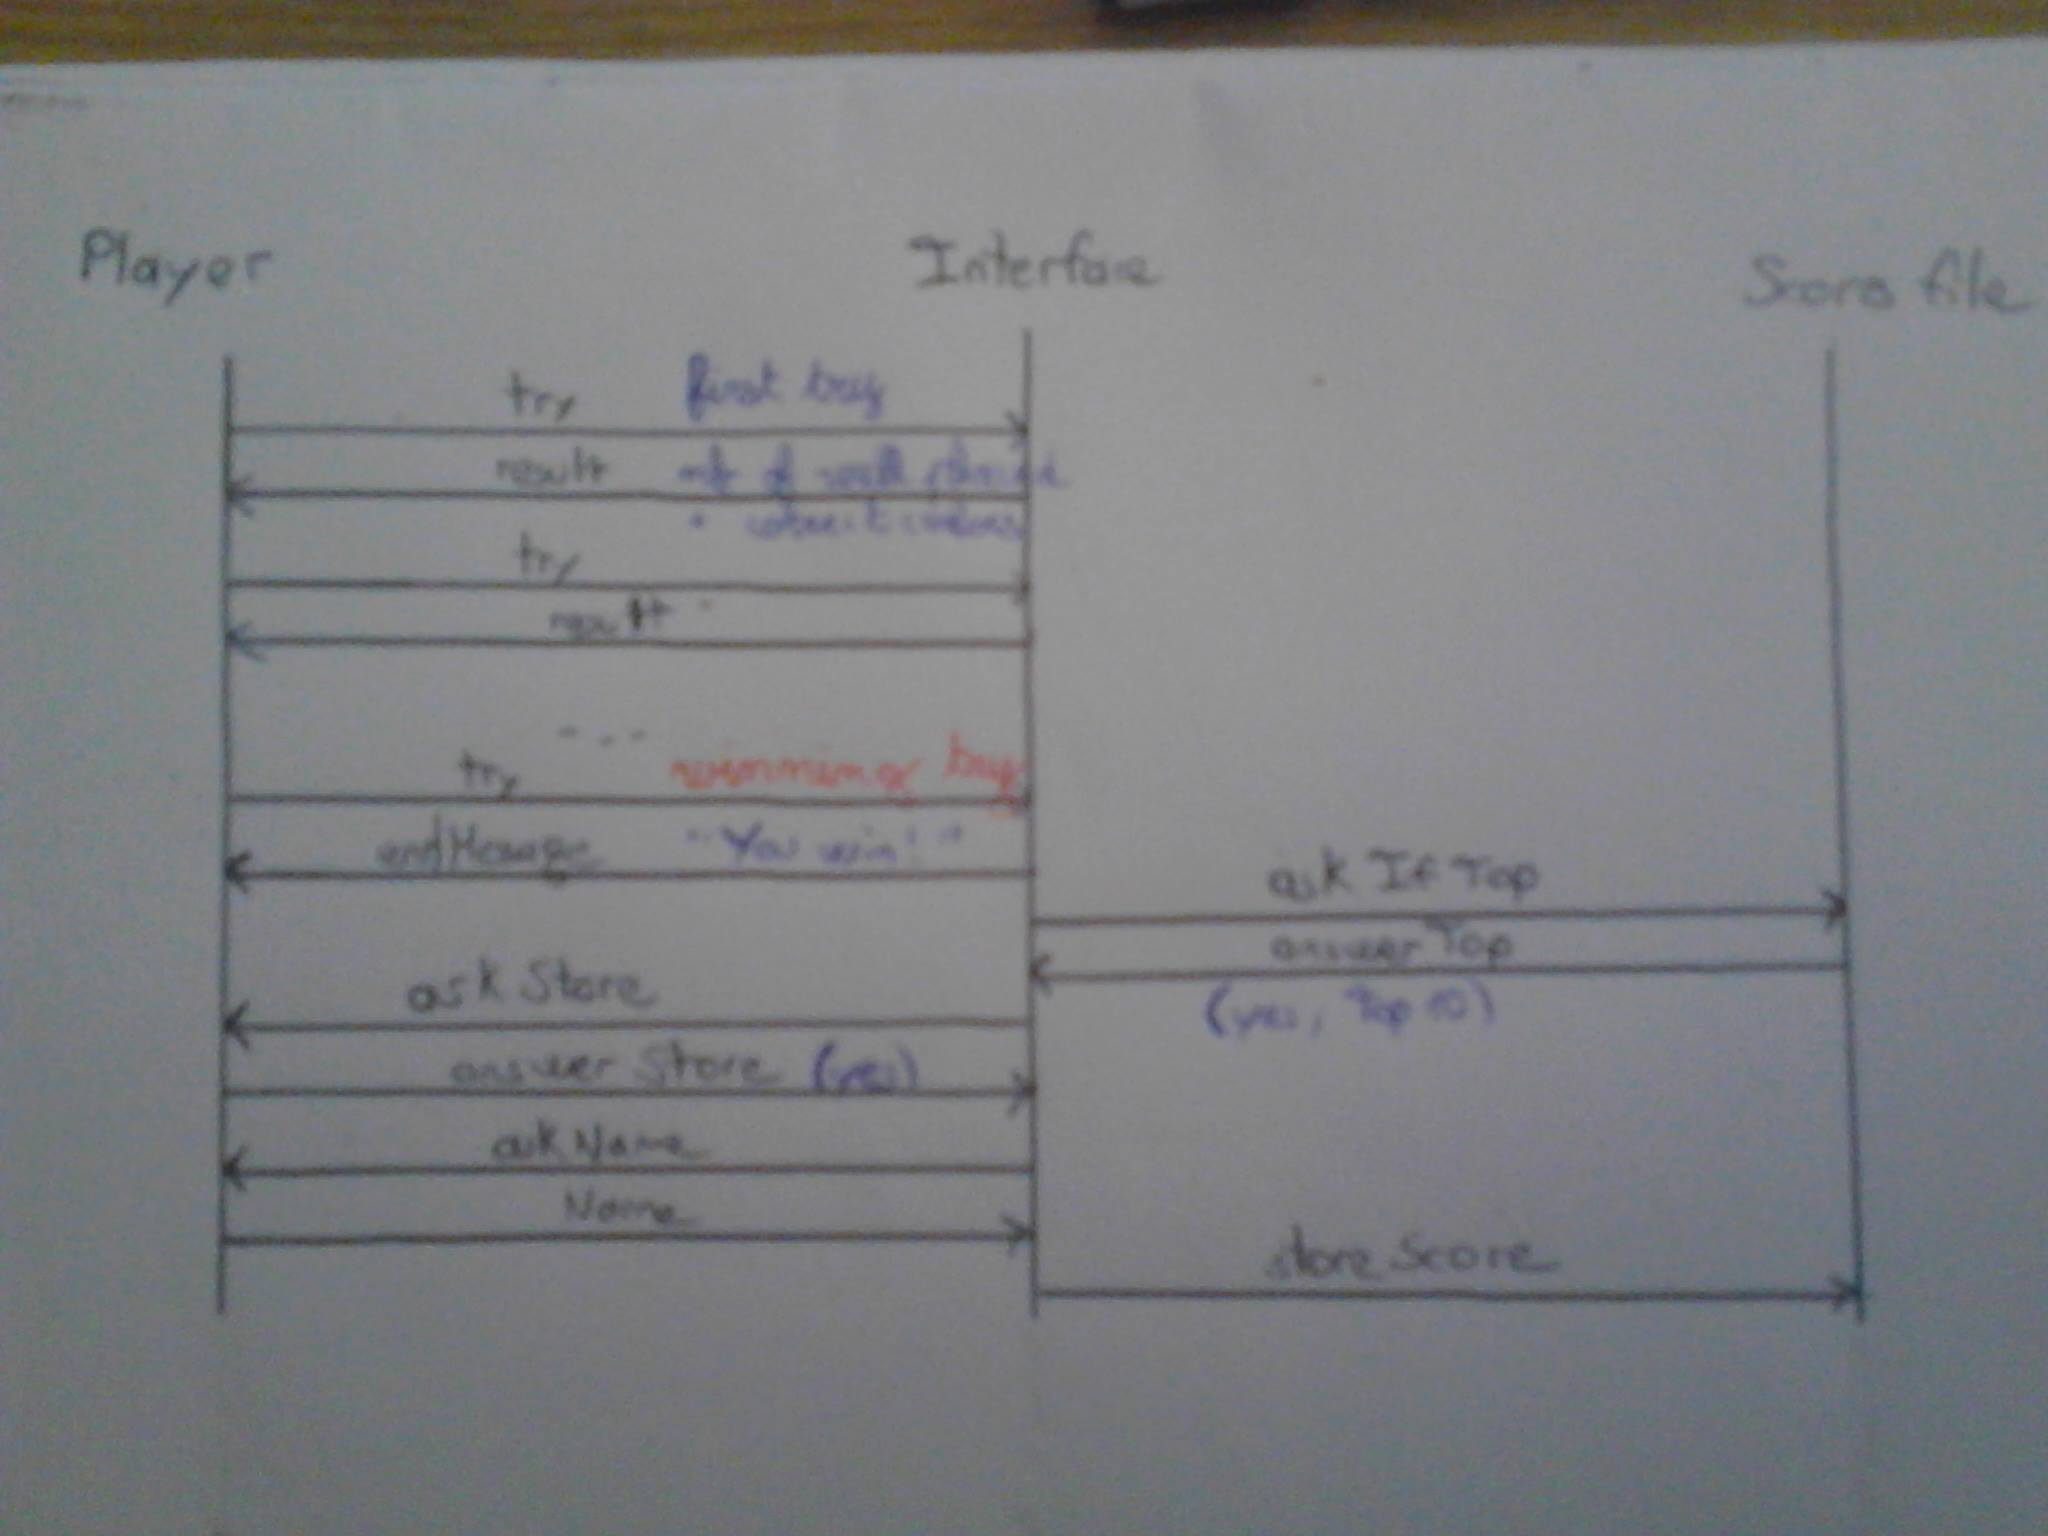 Player
Interface
Score file
try first try
result nb of well placed
correct colors
try
result
...
try winning try
endMessage "You win!"
ask If Top
answer Top
(yes, Top 10)
ask Store
answer Store (yes)
ask Name
Name
store Score